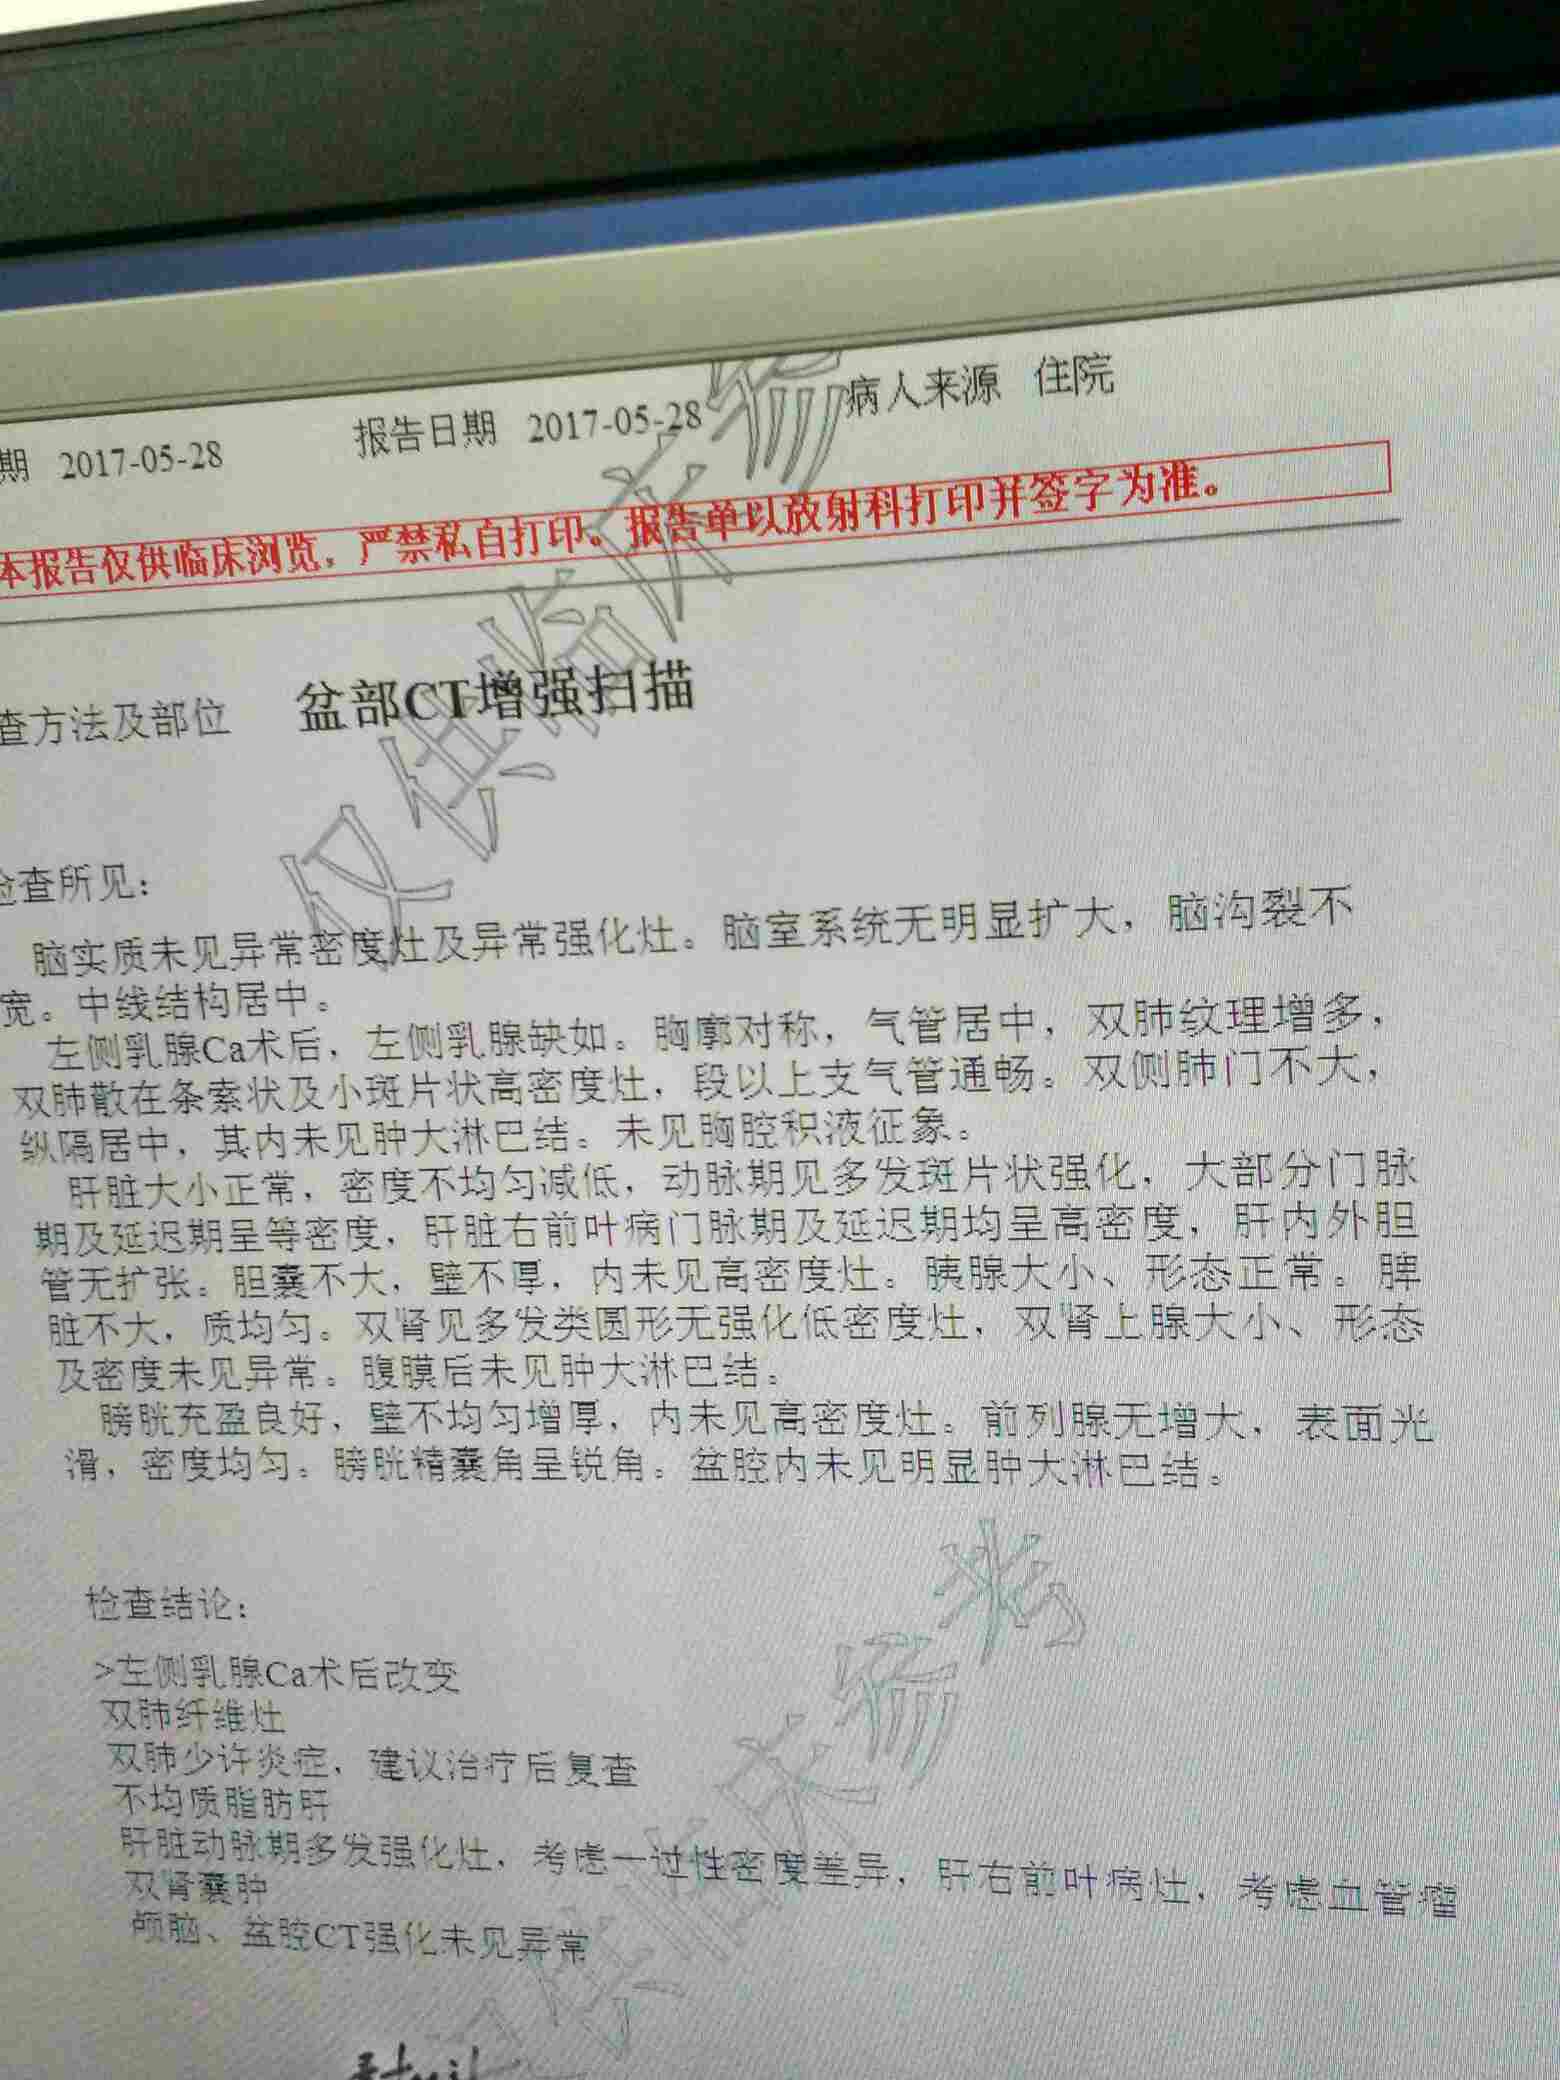 期 2017-05-28 报告日期 2017-05-28 病人来源 住院
本报告仅供临床浏览，严禁私自打印。报告单以放射科打印并签字为准。
查方法及部位 盆部CT增强扫描
仅供临床
检查所见：
脑实质未见异常密度灶及异常强化灶。脑室系统无明显扩大，脑沟裂不
宽。中线结构居中。
左侧乳腺Ca术后，左侧乳腺缺如。胸廓对称，气管居中，双肺纹理增多，
双肺散在条索状及小斑片状高密度灶，段以上支气管通畅。双侧肺门不大，
纵隔居中，其内未见肿大淋巴结。未见胸腔积液征象。
肝脏大小正常，密度不均匀减低，动脉期见多发斑片状强化，大部分门脉
期及延迟期呈等密度，肝脏右前叶病门脉期及延迟期均呈高密度，肝内外胆
管无扩张。胆囊不大，壁不厚，内未见高密度灶。胰腺大小、形态正常。脾
脏不大，质均匀。双肾见多发类圆形无强化低密度灶，双肾上腺大小、形态
及密度未见异常。腹膜后未见肿大淋巴结。
膀胱充盈良好，壁不均匀增厚，内未见高密度灶。前列腺无增大，表面光
滑，密度均匀。膀胱精囊角呈锐角。盆腔内未见明显肿大淋巴结。
检查结论：
>左侧乳腺Ca术后改变
双肺纤维灶
双肺少许炎症，建议治疗后复查
不均质脂肪肝
肝脏动脉期多发强化灶，考虑一过性密度差异，肝右前叶病灶，考虑血管瘤
双肾囊肿
颅脑、盆腔CT强化未见异常